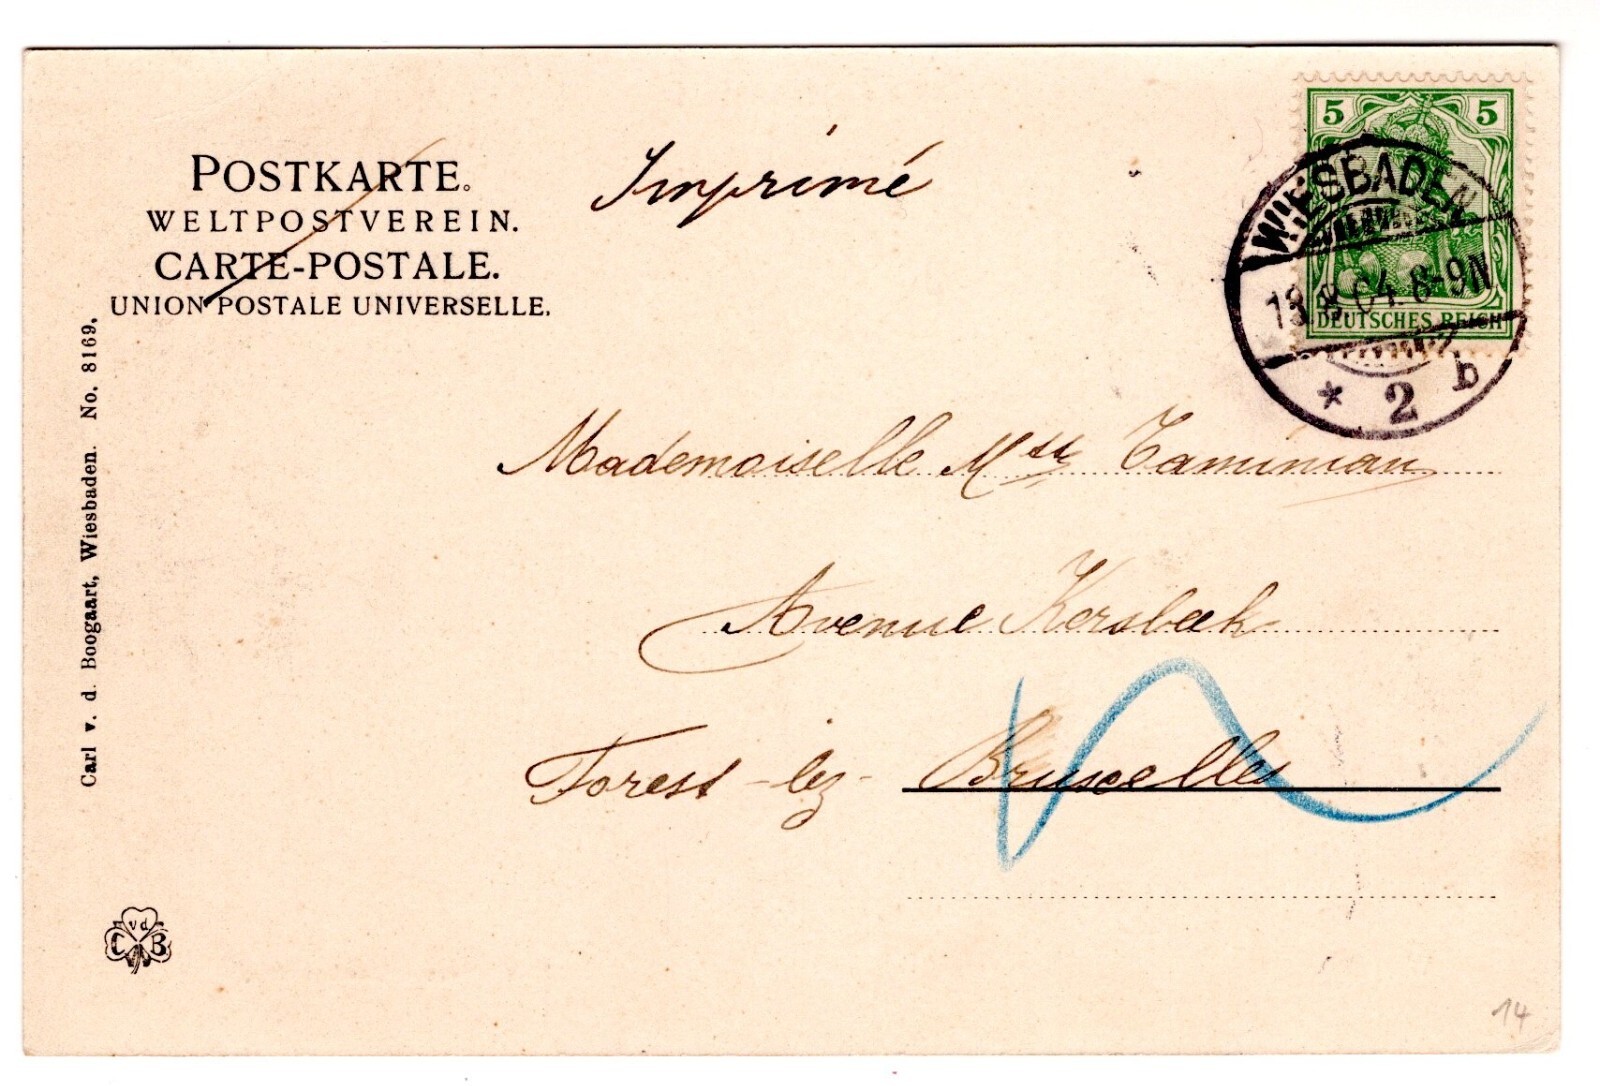 POSTKARTE.
WELTPOSTVEREIN.
CARTE-POSTALE.
UNION POSTALE UNIVERSELLE.
Imprimé
5 5
DEUTSCHES REICH
WIESBADEN
13.8.04. 8-9N
* 2 b
Mademoiselle Mlle Taminiau
Avenue Kersbeek
Forest-lez-Bruxelles
Carl v. d. Boogaart, Wiesbaden. No. 8169.
C vd B
14